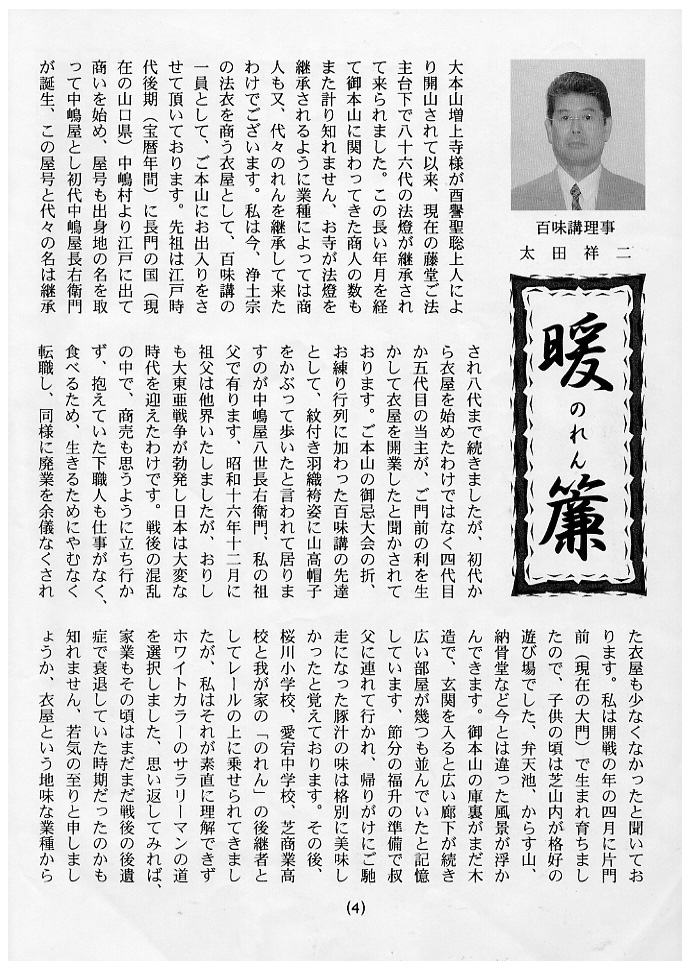 百味講理事
太田祥二
暖簾
のれん
大本山増上寺様が酉譽聖聡上人によ
り開山されて以来、現在の藤堂ご法
主台下で八十六代の法燈が継承され
て来られました。この長い年月を経
て御本山に関わってきた商人の数も
また計り知れません、お寺が法燈を
継承されるように業種によっては商
人も又、代々のれんを継承して来た
わけでございます。私は今、浄土宗
の法衣を商う衣屋として、百味講の
一員として、ご本山にお出入りをさ
せて頂いております。先祖は江戸時
代後期（宝暦年間）に長門の国（現
在の山口県）中嶋村より江戸に出て
商いを始め、屋号も出身地の名を取
って中嶋屋とし初代中嶋屋長右衛門
が誕生、この屋号と代々の名は継承
され八代まで続きましたが、初代か
ら衣屋を始めたわけではなく四代目
か五代目の当主が、ご門前の利を生
かして衣屋を開業したと聞かされて
おります。ご本山の御忌大会の折、
お練り行列に加わった百味講の先達
として、紋付き羽織袴姿に山高帽子
をかぶって歩いたと言われて居りま
すのが中嶋屋八世長右衛門、私の祖
父で有ります、昭和十六年十二月に
祖父は他界いたしましたが、おりし
も大東亜戦争が勃発し日本は大変な
時代を迎えたわけです。戦後の混乱
の中で、商売も思うように立ち行か
ず、抱えていた下職人も仕事がなく、
食べるため、生きるためにやむなく
転職し、同様に廃業を余儀なくされ
た衣屋も少なくなかったと聞いてお
ります。私は開戦の年の四月に片門
前（現在の大門）で生まれ育ちまし
たので、子供の頃は芝山内が格好の
遊び場でした、弁天池、からす山、
納骨堂など今とは違った風景が浮か
んできます。御本山の庫裏がまだ木
造で、玄関を入ると広い廊下が続き
広い部屋が幾つも並んでいたと記憶
しています、節分の福升の準備で叔
父に連れて行かれ、帰りがけにご馳
走になった豚汁の味は格別に美味し
かったと覚えております。その後、
桜川小学校、愛宕中学校、芝商業高
校と我が家の「のれん」の後継者と
してレールの上に乗せられてきまし
たが、私はそれが素直に理解できず
ホワイトカラーのサラリーマンの道
を選択しました、思い返してみれば、
家業もその頃はまだまだ戦後の後遺
症で衰退していた時期だったのかも
知れません、若気の至りと申しまし
ょうか、衣屋という地味な業種から
(4)